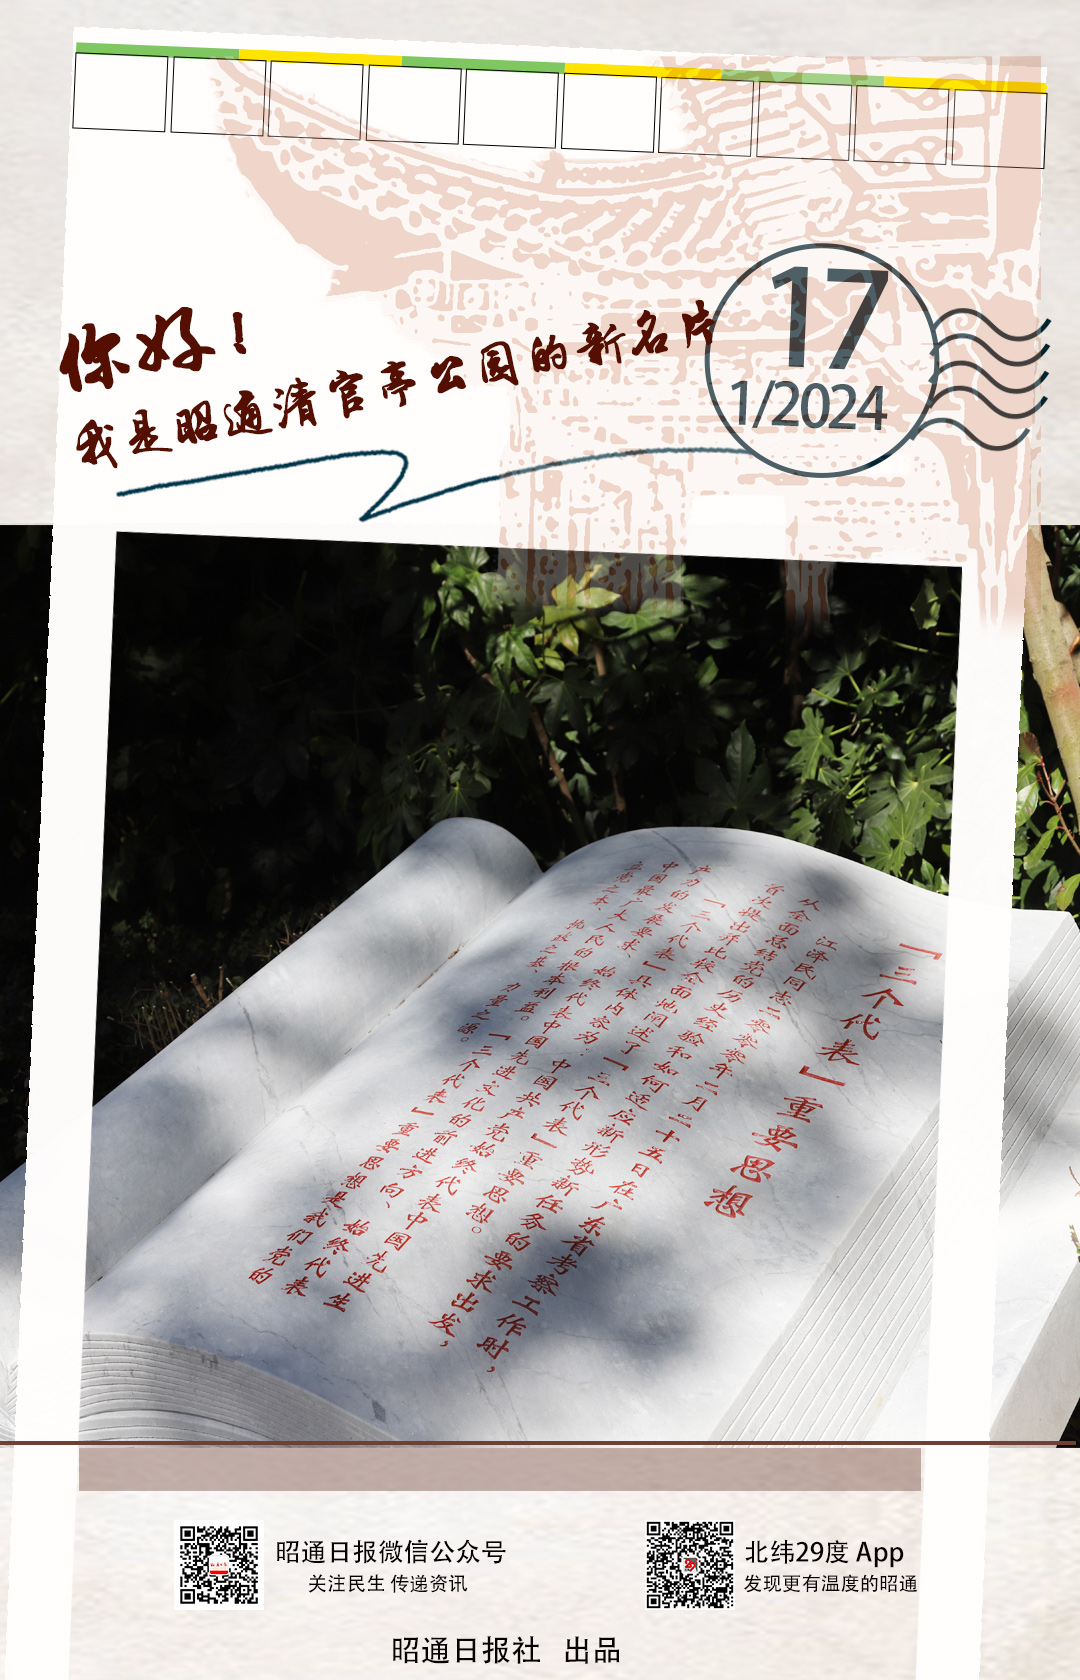 你好!
我是昭通清官亭公园的新名片
17
1/2024
「三个代表」重要思想
江泽民同志二零零零年二月二十五日在广东省考察工作时,
从全面总结党的历史经验和如何适应新形势新任务的要求出发,
首次提出并比较全面地阐述了「三个代表」重要思想。
「三个代表」具体内容为:中国共产党始终代表中国先进生
产力的发展要求、始终代表中国先进文化的前进方向、始终代表
中国最广大人民的根本利益。「三个代表」重要思想是我们党的
立党之本、执政之基、力量之源。
昭通日报微信公众号
关注民生 传递资讯
北纬29度 App
发现更有温度的昭通
昭通日报社 出品